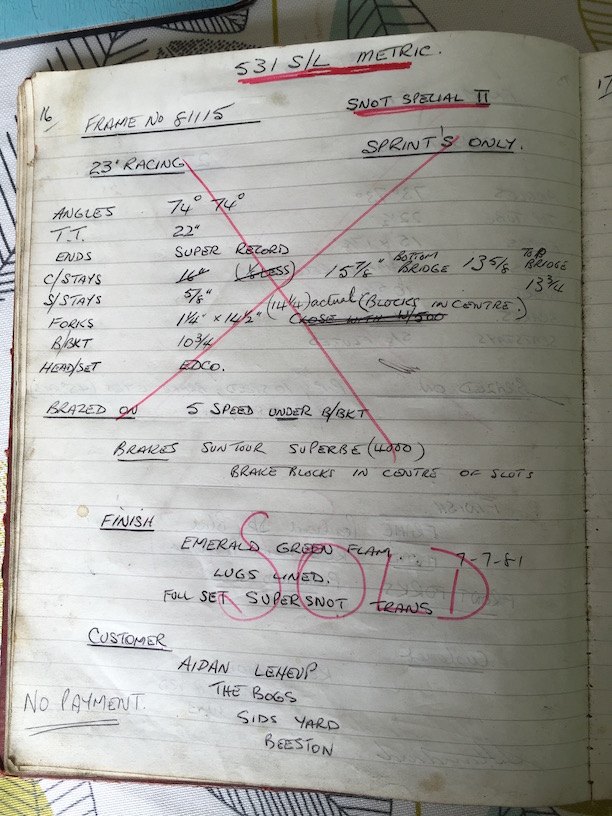 531 S/L METRIC.
16 FRAME NO 81115 SNOT SPECIAL II
SPRINT'S ONLY.
23" RACING
ANGLES 74° 74°
T.T. 22"
ENDS SUPER RECORD
C/STAYS 16" (⅛ LESS) 15 7/8" BOTTOM BRIDGE 13 5/8 TOP BRIDGE 13 3/4
S/STAYS 5/8"
FORKS 1¼" × 14½" (14¼) actual (BLOCKS IN CENTRE.)
CLOSE WITH N/500
B/BKT 10¾
HEAD/SET EDCO.
BRAZED ON 5 SPEED UNDER B/BKT
BRAKES SUNTOUR SUPERBE (4000)
BRAKE BLOCKS IN CENTRE OF SLOTS
FINISH
EMERALD GREEN FLAM... 7-7-81
LUGS LINED.
FULL SET SUPERSNOT TRANS
SOLD
CUSTOMER
AIDAN LEHEUP
THE BOGS
SIDS YARD
BEESTON
NO PAYMENT.